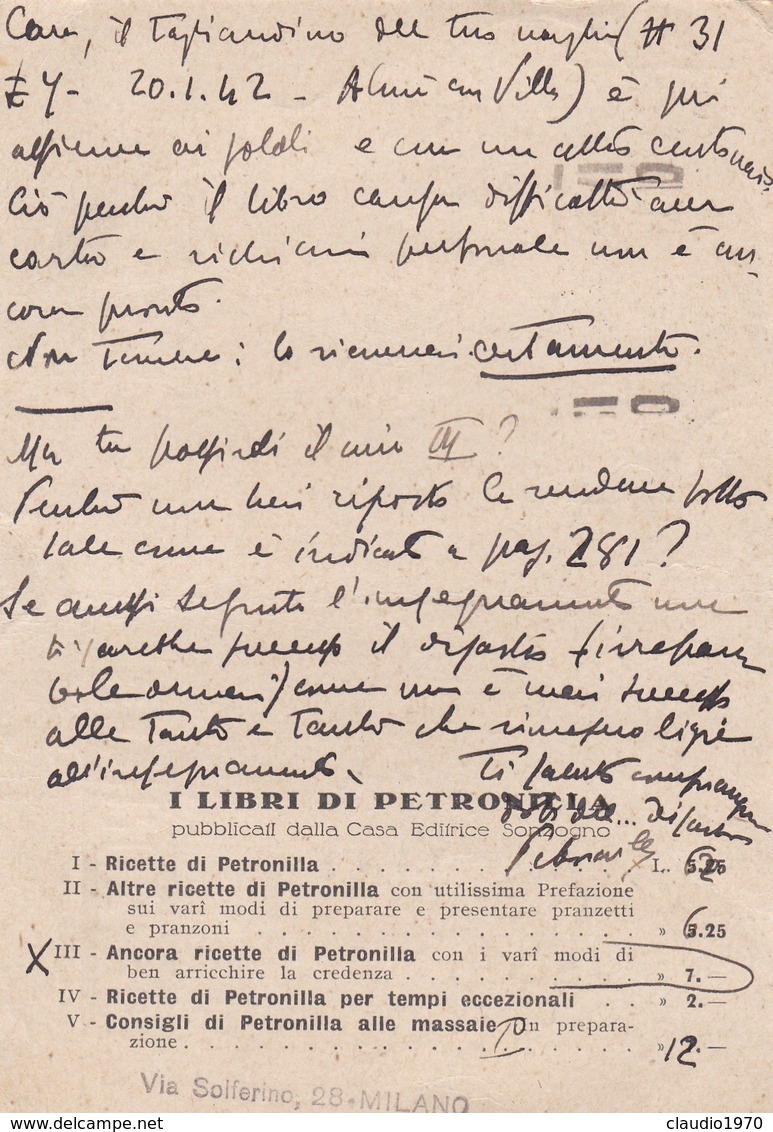 Cara, il tagliandino del tuo vaglia (# 31
20.1.42 - Almè con Villa) è qui
assieme ai soldi e con un altro centinaio.
Ciò perchè il libro causa difficoltà con
carta e richiami personale non è an-
cora pronto.
Non temere: lo riceverai certamente.
Ma tu possiedi il mio III?
Perchè non hai riposto le verdure sotto
sale come è indicato a pag. 281?
Se avessi seguito l'insegnamento non
ti sarebbe successo il disastro (irrepara
bile ormai) come non è mai successo
alle tante e tante che rimasero ligie
all'insegnamento.
Ti saluto
del... disastro
Petronilla
I LIBRI DI PETRONILLA
pubblicati dalla Casa Editrice Sonzogno
I - Ricette di Petronilla . . . . . . . . . . . L. 5.25
II - Altre ricette di Petronilla con utilissima Prefazione
sui varî modi di preparare e presentare pranzetti
e pranzoni . . . . . . . . . . . . . » 5.25
X III - Ancora ricette di Petronilla con i varî modi di
ben arricchire la credenza . . . . . . . . » 7.—
IV - Ricette di Petronilla per tempi eccezionali . . » 2.—
V - Consigli di Petronilla alle massaie In prepara-
zione . . . . . . . . . . . . . . » 12.—
Via Solferino, 28 - MILANO
claudio1970